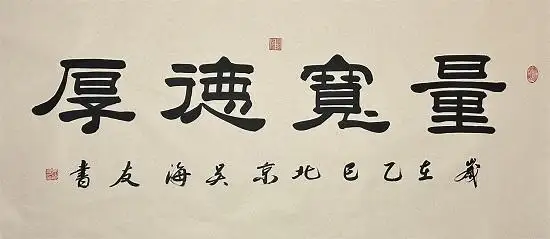 量寬德厚
歲在乙巳北京吴海友書